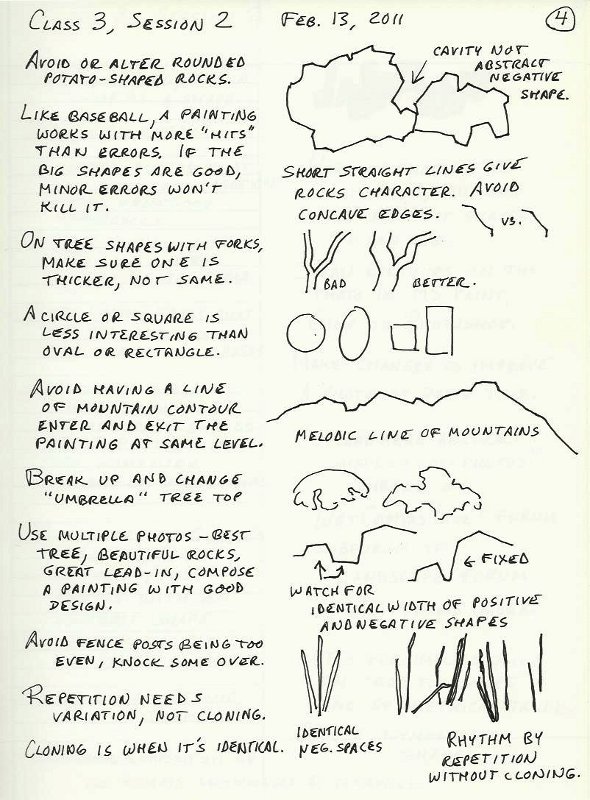 Class 3, Session 2
Feb. 13, 2011
4
Avoid or alter rounded
potato-shaped rocks.
Cavity not
abstract
negative
shape.
Like baseball, a painting
works with more "hits"
than errors. If the
big shapes are good,
minor errors won't
kill it.
Short straight lines give
rocks character. Avoid
concave edges.
vs.
On tree shapes with forks,
make sure one is
thicker, not same.
Bad
Better.
A circle or square is
less interesting than
oval or rectangle.
Avoid having a line
of mountain contour
enter and exit the
painting at same level.
Melodic line of mountains
Break up and change
"umbrella" tree top
Use multiple photos - best
tree, beautiful rocks,
great lead-in, compose
a painting with good
design.
← Fixed
Watch for
identical width of positive
and negative shapes
Avoid fence posts being too
even, knock some over.
Repetition needs
variation, not cloning.
Cloning is when it's identical.
Identical
neg. spaces
Rhythm by
repetition
without cloning.